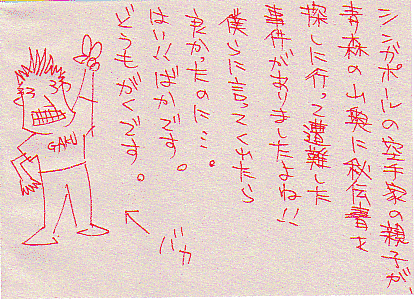 シンガポールの空手家の親子が、
青森の山奥に秘伝書を
探しに行って遭難した
事件がありましたよね!!
僕らに言ってくれたら
良かったのに…。
はい!!ばかです。
どうもがくです。
バカ
GAKU